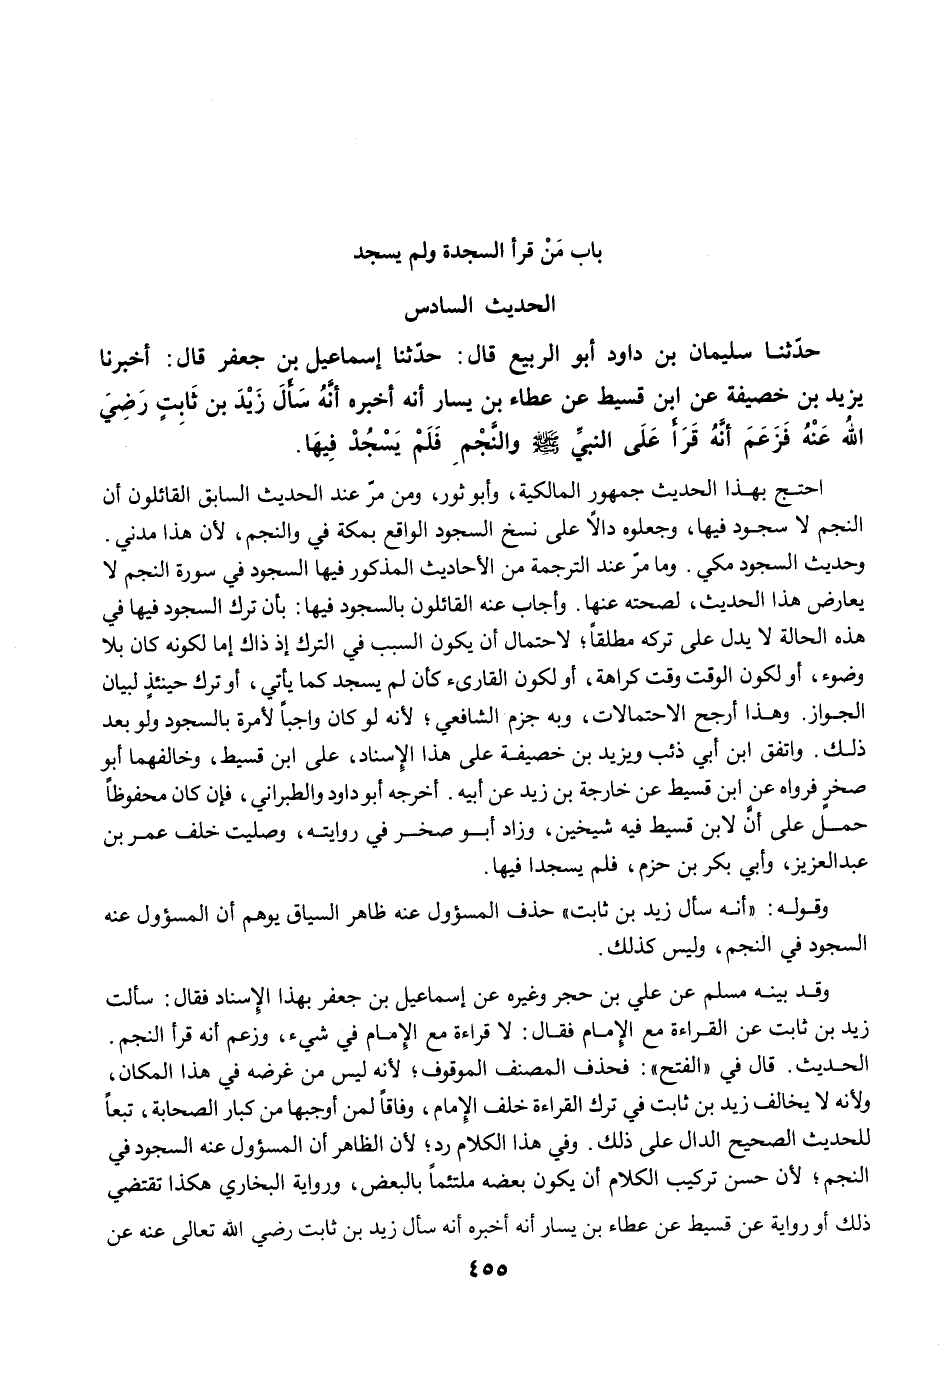 باب مَنْ قرأ السجدة ولم يسجد
الحديث السادس
حدّثنا سليمان بن داود أبو الربيع قال: حدّثنا إسماعيل بن جعفر قال: أخبرنا
يزيد بن خصيفة عن ابن قسيط عن عطاء بن يسار أنه أخبره أنَّهُ سَأَلَ زَيْدَ بن ثَابِتٍ رَضِيَ
اللهُ عَنْهُ فَزَعَمَ أنَّهُ قَرَأَ عَلَى النبيِّ ﷺ والنَّجْمِ فَلَمْ يَسْجُدْ فِيهَا.
احتج بهذا الحديث جمهور المالكية، وأبو ثور، ومن مرّ عند الحديث السابق القائلون أن
النجم لا سجود فيها، وجعلوه دالاً على نسخ السجود الواقع بمكة في والنجم، لأن هذا مدني.
وحديث السجود مكي. وما مرّ عند الترجمة من الأحاديث المذكور فيها السجود في سورة النجم لا
يعارض هذا الحديث، لصحته عنها. وأجاب عنه القائلون بالسجود فيها: بأن ترك السجود فيها في
هذه الحالة لا يدل على تركه مطلقاً؛ لاحتمال أن يكون السبب في الترك إذ ذاك إما لكونه كان بلا
وضوء، أو لكون الوقت وقت كراهة، أو لكون القارىء كأن لم يسجد كما يأتي، أو ترك حينئذٍ لبيان
الجواز. وهذا أرجح الاحتمالات، وبه جزم الشافعي؛ لأنه لو كان واجباً لأمرة بالسجود ولو بعد
ذلك. واتفق ابن أبي ذئب ويزيد بن خصيفة على هذا الإسناد، على ابن قسيط، وخالفهما أبو
صخرٍ فرواه عن ابن قسيط عن خارجة بن زيد عن أبيه. أخرجه أبو داود والطبراني، فإن كان محفوظاً
حمل على أنَّ لابن قسيط فيه شيخين، وزاد أبو صخر في روايته، وصليت خلف عمر بن
عبدالعزيز، وأبي بكر بن حزم، فلم يسجدا فيها.
وقوله: «أنه سأل زيد بن ثابت» حذف المسؤول عنه ظاهر السياق يوهم أن المسؤول عنه
السجود في النجم، وليس كذلك.
وقد بينه مسلم عن علي بن حجر وغيره عن إسماعيل بن جعفر بهذا الإسناد فقال: سألت
زيد بن ثابت عن القراءة مع الإمام فقال: لا قراءة مع الإمام في شيء، وزعم أنه قرأ النجم.
الحديث. قال في «الفتح»: فحذف المصنف الموقوف؛ لأنه ليس من غرضه في هذا المكان،
ولأنه لا يخالف زيد بن ثابت في ترك القراءة خلف الإمام، وفاقاً لمن أوجبها من كبار الصحابة، تبعاً
للحديث الصحيح الدال على ذلك. وفي هذا الكلام رد؛ لأن الظاهر أن المسؤول عنه السجود في
النجم؛ لأن حسن تركيب الكلام أن يكون بعضه ملتئماً بالبعض، ورواية البخاري هكذا تقتضي
ذلك أو رواية عن قسيط عن عطاء بن يسار أنه أخبره أنه سأل زيد بن ثابت رضي الله تعالى عنه عن
٤٥٥